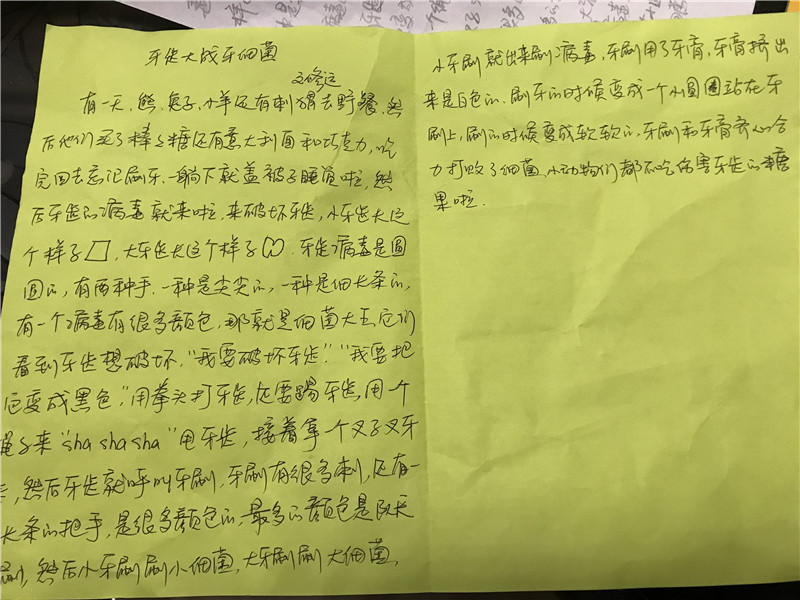 牙齿大战牙细菌
有一天,熊、兔子、小羊还有刺猬去野餐,然
后他们买了棒棒糖还有意大利面和巧克力,吃
完回去忘记刷牙,一躺下就盖被子睡觉啦,然
后牙齿的病毒就来啦,来破坏牙齿,小牙齿长这
个样子,大牙齿长这个样子。牙齿病毒是圆
圆的,有两种手,一种是尖尖的,一种是细长条的,
有一个病毒有很多颜色,那就是细菌大王,它们
看到牙齿想破坏,“我要破坏牙齿”“我要把
它变成黑色”,用拳头打牙齿,还要踢牙齿,用一个
绳子来“sha sha sha”甩牙齿,接着拿个叉子叉牙
,然后牙齿就呼叫牙刷,牙刷有很多刺,还有一
长条的把手,是很多颜色的,最多的颜色是队长
刷,然后小牙刷刷小细菌,大牙刷刷大细菌,
小牙刷就出来刷病毒,牙刷用了牙膏,牙膏挤出
来是白色的,刷牙的时候变成一个小圆圈站在牙
刷上,刷的时候变成软软的,牙刷和牙膏齐心合
力打败了细菌,小动物们都不吃伤害牙齿的糖
果啦.